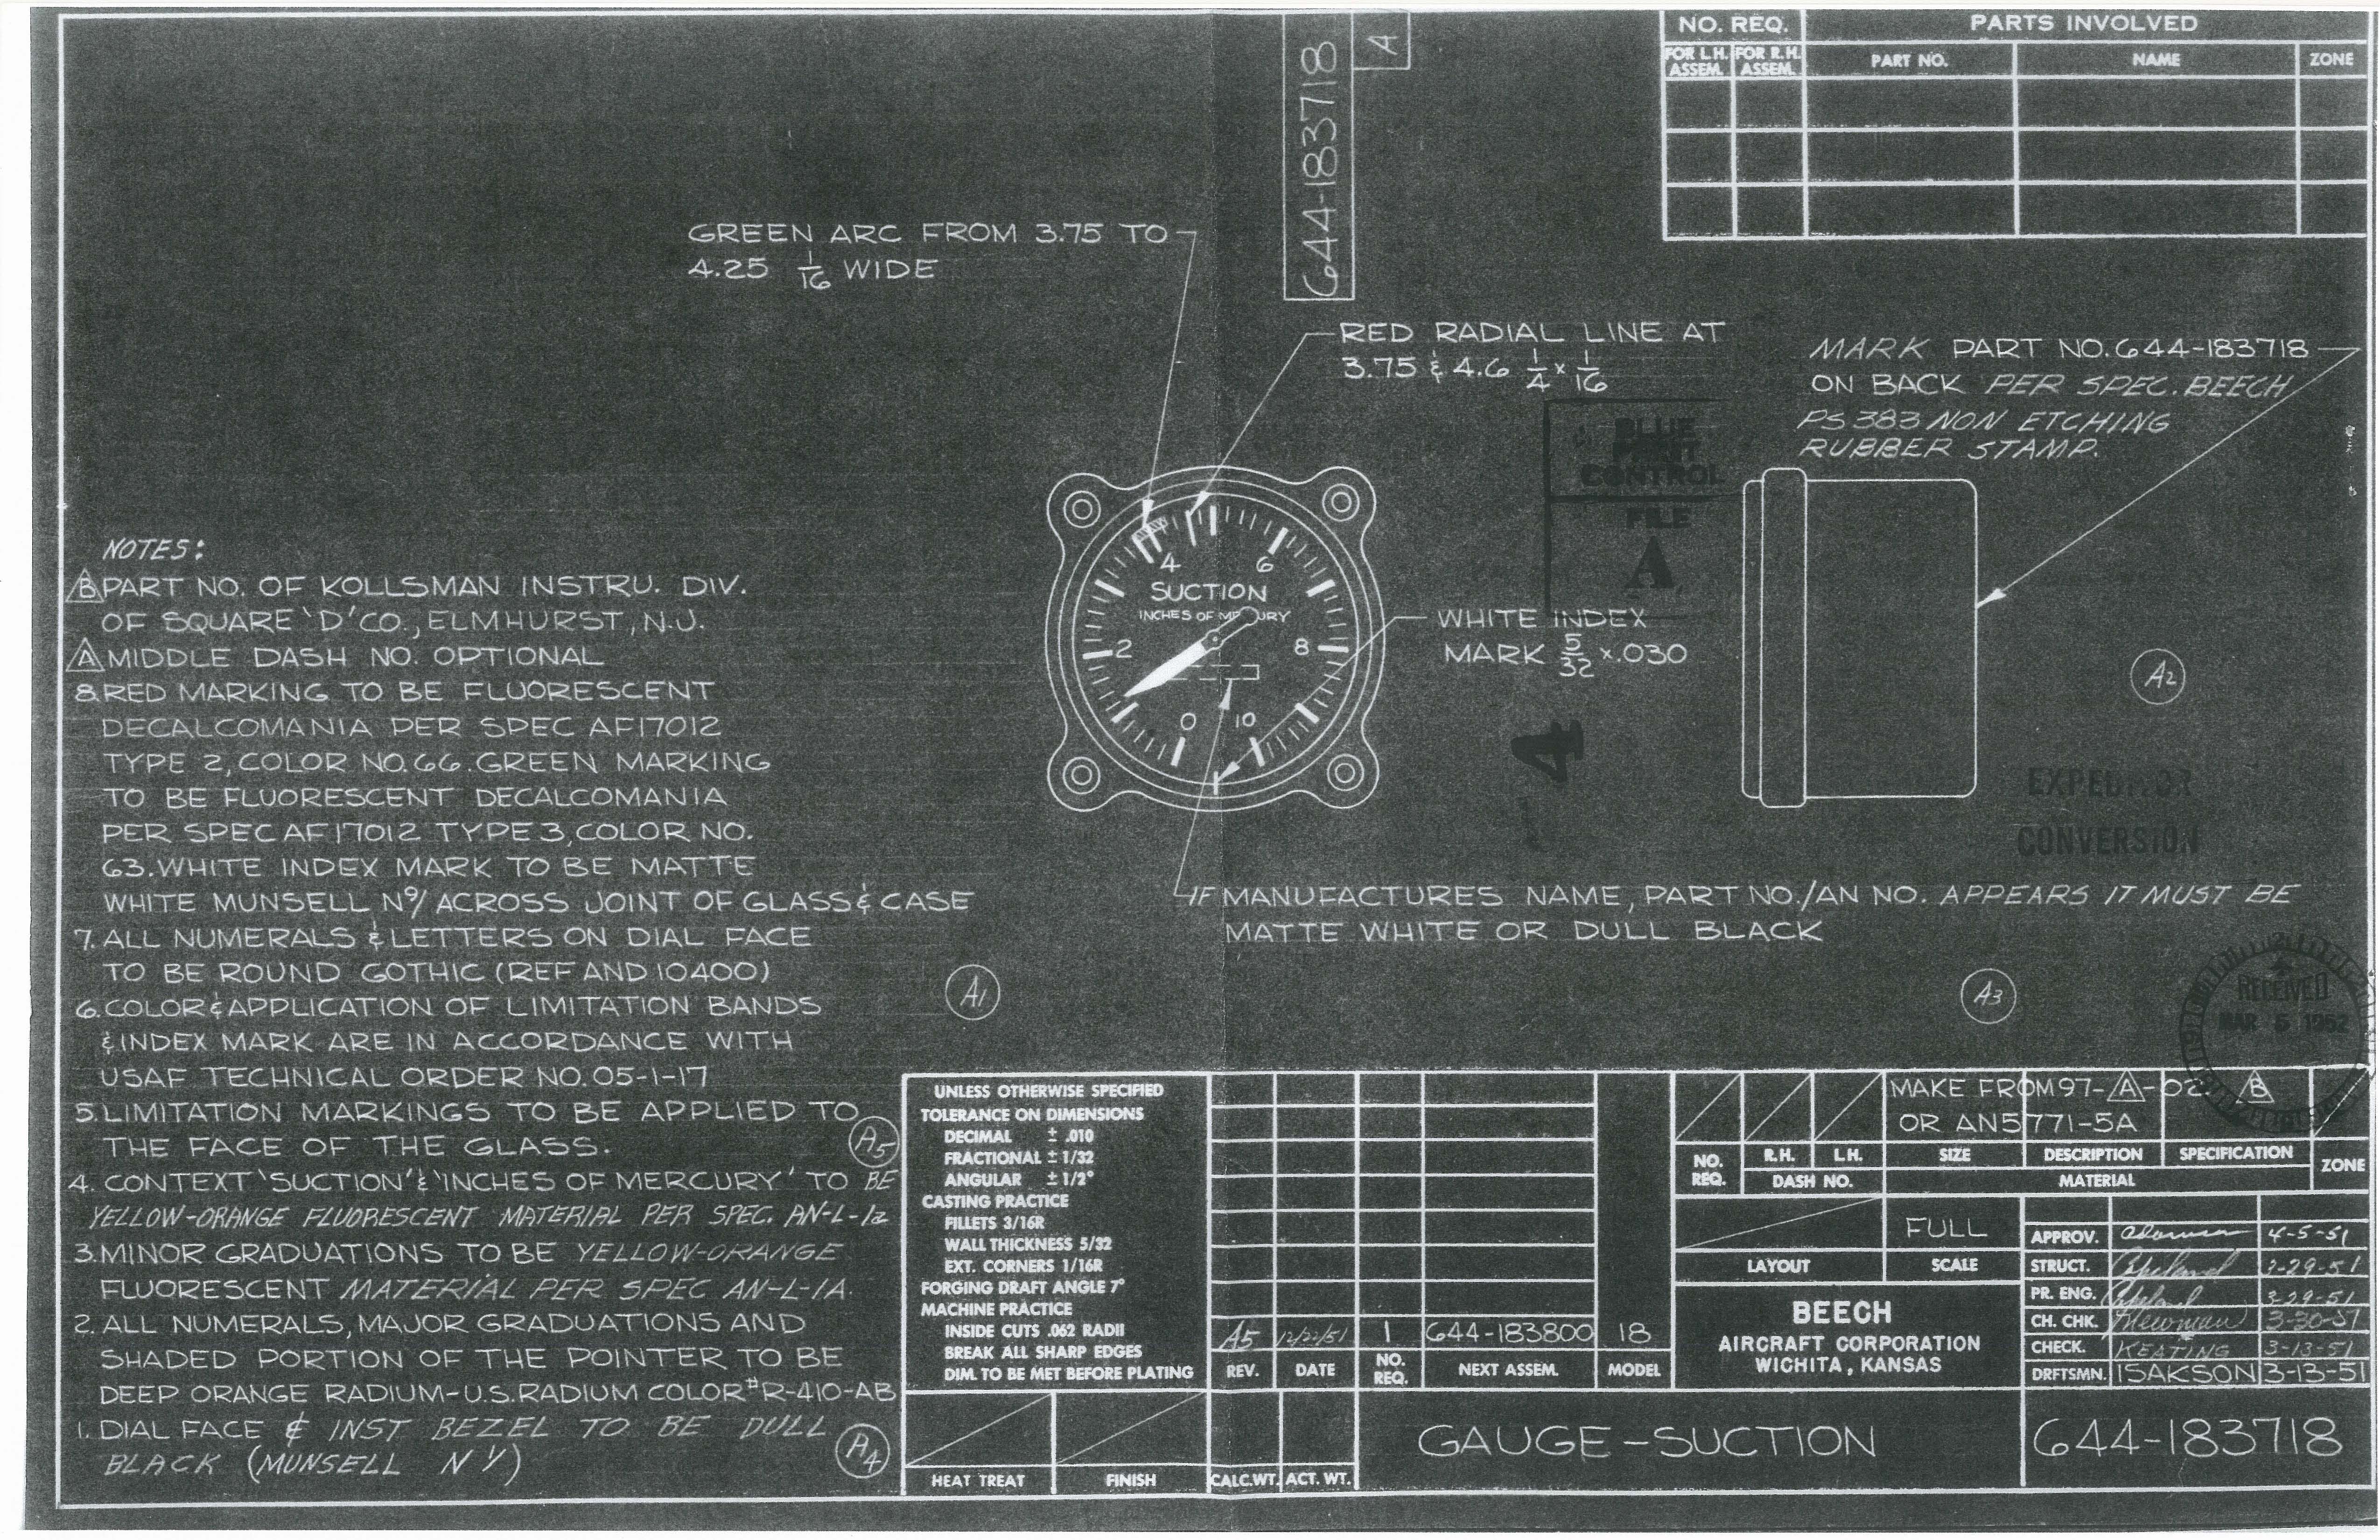 644-183718
A
NO. REQ.
PARTS INVOLVED
FOR L.H. ASSEM.
FOR R.H. ASSEM.
PART NO.
NAME
ZONE
GREEN ARC FROM 3.75 TO
4.25 1/16 WIDE
RED RADIAL LINE AT
3.75 & 4.6 1/4 x 1/16
MARK PART NO. 644-183718
ON BACK PER SPEC. BEECH
PS 383 NON ETCHING
RUBBER STAMP.
BLUE
PRINT
CONTROL
FILE
A
4
6
SUCTION
INCHES OF MERCURY
2
8
0
10
WHITE INDEX
MARK 5/32 x .030
A2
4
EXPEDITOR
CONVERSION
IF MANUFACTURES NAME, PART NO./AN NO. APPEARS IT MUST BE
MATTE WHITE OR DULL BLACK
A3
RECEIVED
MAR 5 1952
NOTES:
B PART NO. OF KOLLSMAN INSTRU. DIV.
OF SQUARE 'D' CO., ELMHURST, N.J.
A MIDDLE DASH NO. OPTIONAL
8. RED MARKING TO BE FLUORESCENT
DECALCOMANIA PER SPEC AF17012
TYPE 2, COLOR NO. 66. GREEN MARKING
TO BE FLUORESCENT DECALCOMANIA
PER SPEC AF17012 TYPE 3, COLOR NO.
63. WHITE INDEX MARK TO BE MATTE
WHITE MUNSELL N9/ ACROSS JOINT OF GLASS & CASE
7. ALL NUMERALS & LETTERS ON DIAL FACE
TO BE ROUND GOTHIC (REF AND 10400)
6. COLOR & APPLICATION OF LIMITATION BANDS
& INDEX MARK ARE IN ACCORDANCE WITH
USAF TECHNICAL ORDER NO. 05-1-17
5. LIMITATION MARKINGS TO BE APPLIED TO
THE FACE OF THE GLASS.
4. CONTEXT 'SUCTION' & 'INCHES OF MERCURY' TO BE
YELLOW-ORANGE FLUORESCENT MATERIAL PER SPEC. AN-L-1a
3. MINOR GRADUATIONS TO BE YELLOW-ORANGE
FLUORESCENT MATERIAL PER SPEC AN-L-1A.
2. ALL NUMERALS, MAJOR GRADUATIONS AND
SHADED PORTION OF THE POINTER TO BE
DEEP ORANGE RADIUM-U.S. RADIUM COLOR #R-410-AB
1. DIAL FACE & INST BEZEL TO BE DULL
BLACK (MUNSELL N 1/)
A1
A5
A4
UNLESS OTHERWISE SPECIFIED
TOLERANCE ON DIMENSIONS
DECIMAL ± .010
FRACTIONAL ± 1/32
ANGULAR ± 1/2°
CASTING PRACTICE
FILLETS 3/16R
WALL THICKNESS 5/32
EXT. CORNERS 1/16R
FORGING DRAFT ANGLE 7°
MACHINE PRACTICE
INSIDE CUTS .062 RADII
BREAK ALL SHARP EDGES
DIM. TO BE MET BEFORE PLATING
HEAT TREAT
FINISH
A5 12/22/51 1 644-183800 18
REV. DATE NO. REQ. NEXT ASSEM. MODEL
CALC.WT. ACT. WT.
MAKE FROM 97-A-02 B
OR AN5771-5A
NO. REQ.
R.H. L.H.
DASH NO.
SIZE DESCRIPTION SPECIFICATION
MATERIAL
ZONE
LAYOUT
FULL
SCALE
BEECH
AIRCRAFT CORPORATION
WICHITA, KANSAS
APPROV. 4-5-51
STRUCT. Copeland 3-29-51
PR. ENG. Copeland 3-29-51
CH. CHK. Newman 3-30-51
CHECK. KEATING 3-13-51
DRFTSMN. ISAKSON 3-13-51
GAUGE-SUCTION
644-183718